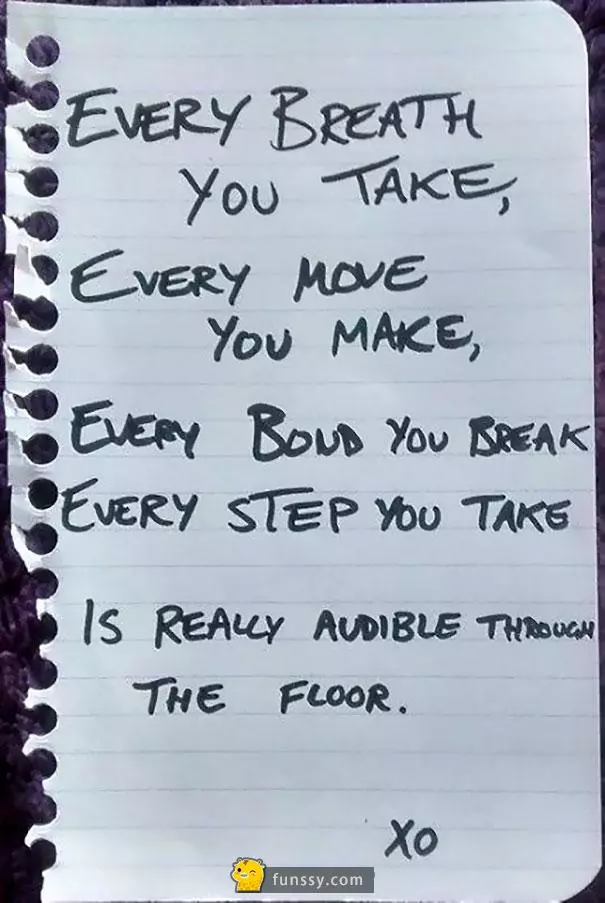 EVERY BREATH
YOU TAKE,
EVERY MOVE
YOU MAKE,
EVERY BOND YOU BREAK
EVERY STEP YOU TAKE
IS REALLY AUDIBLE THROUGH
THE FLOOR.
XO
funssy.com